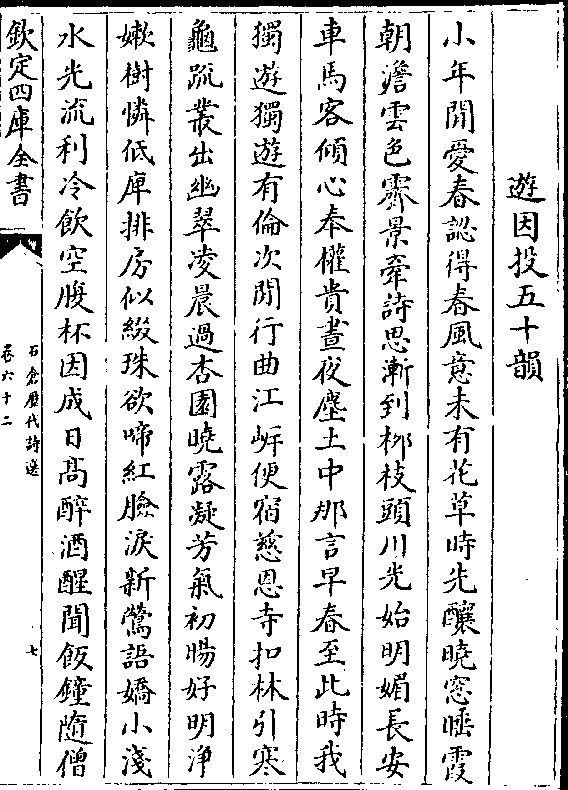 遊因投五十韻
小年閒愛春認得春風意未有花草時先釀曉窓睡霞
朝澹雲色霽景牽詩思漸到栁枝頭川光始明媚長安
車馬客傾心奉權貴晝夜塵土中那言早春至此時我
獨遊獨遊有倫次閒行曲江岍便宿慈恩寺扣林引寒
龜疏叢出幽翠凌晨過杏園曉露凝芳氣初暘好明淨
嫰樹憐低庳排房似綴珠欲啼紅臉淚新鶯語嬌小淺
水光流利冷飲空腹杯因成日髙醉酒醒聞飯鐘隨僧
欽定四庫全書
石倉歷代詩選
卷六十二
七